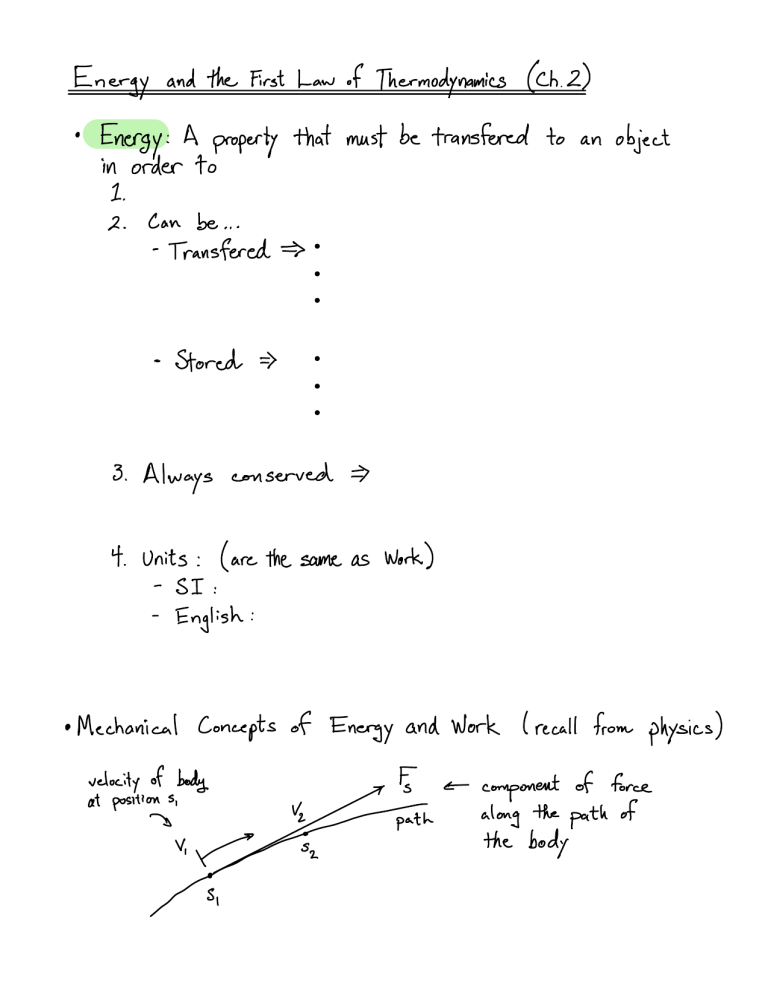 Energy and the First Law of Thermodynamics (Ch. 2)
• Energy: A property that must be transfered to an object
in order to
1.
2. Can be...
- Transfered ⇒ •
•
•
- Stored ⇒ •
•
•
3. Always conserved ⇒
4. Units: (are the same as Work)
- SI:
- English:
• Mechanical Concepts of Energy and Work (recall from physics)
velocity of body
at position s₁
V₁
V₂
F_s
path
s₁
s₂
← component of force
along the path of
the body